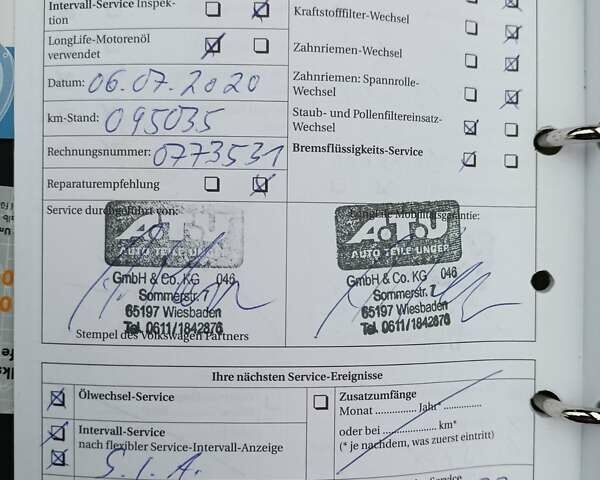 Intervall-Service Inspek-
tion
LongLife-Motorenöl
verwendet
Datum: 06.07.2020
km-Stand: 095035
Rechnungsnummer: 0773531
Reparaturempfehlung
Kraftstofffilter-Wechsel
Zahnriemen-Wechsel
Zahnriemen: Spannrolle-
Wechsel
Staub- und Pollenfiltereinsatz-
Wechsel
Bremsflüssigkeits-Service
Service durchgeführt von:
A.T.U
AUTO TEILE UNGER
GmbH & Co. KG 046
Sommerstr. 7
65197 Wiesbaden
Tel. 0611/1842876
Stempel des Volkswagen Partners
Mobilitätsgarantie:
A.T.U
AUTO TEILE UNGER
GmbH & Co. KG 046
Sommerstr. 7
65197 Wiesbaden
Tel. 0611/1842876
Ihre nächsten Service-Ereignisse
Ölwechsel-Service
Intervall-Service
nach flexibler Service-Intervall-Anzeige
S.I.A.
Zusatzumfänge
Monat ............... Jahr* ...............
oder bei .................... km*
(* je nachdem, was zuerst eintritt)